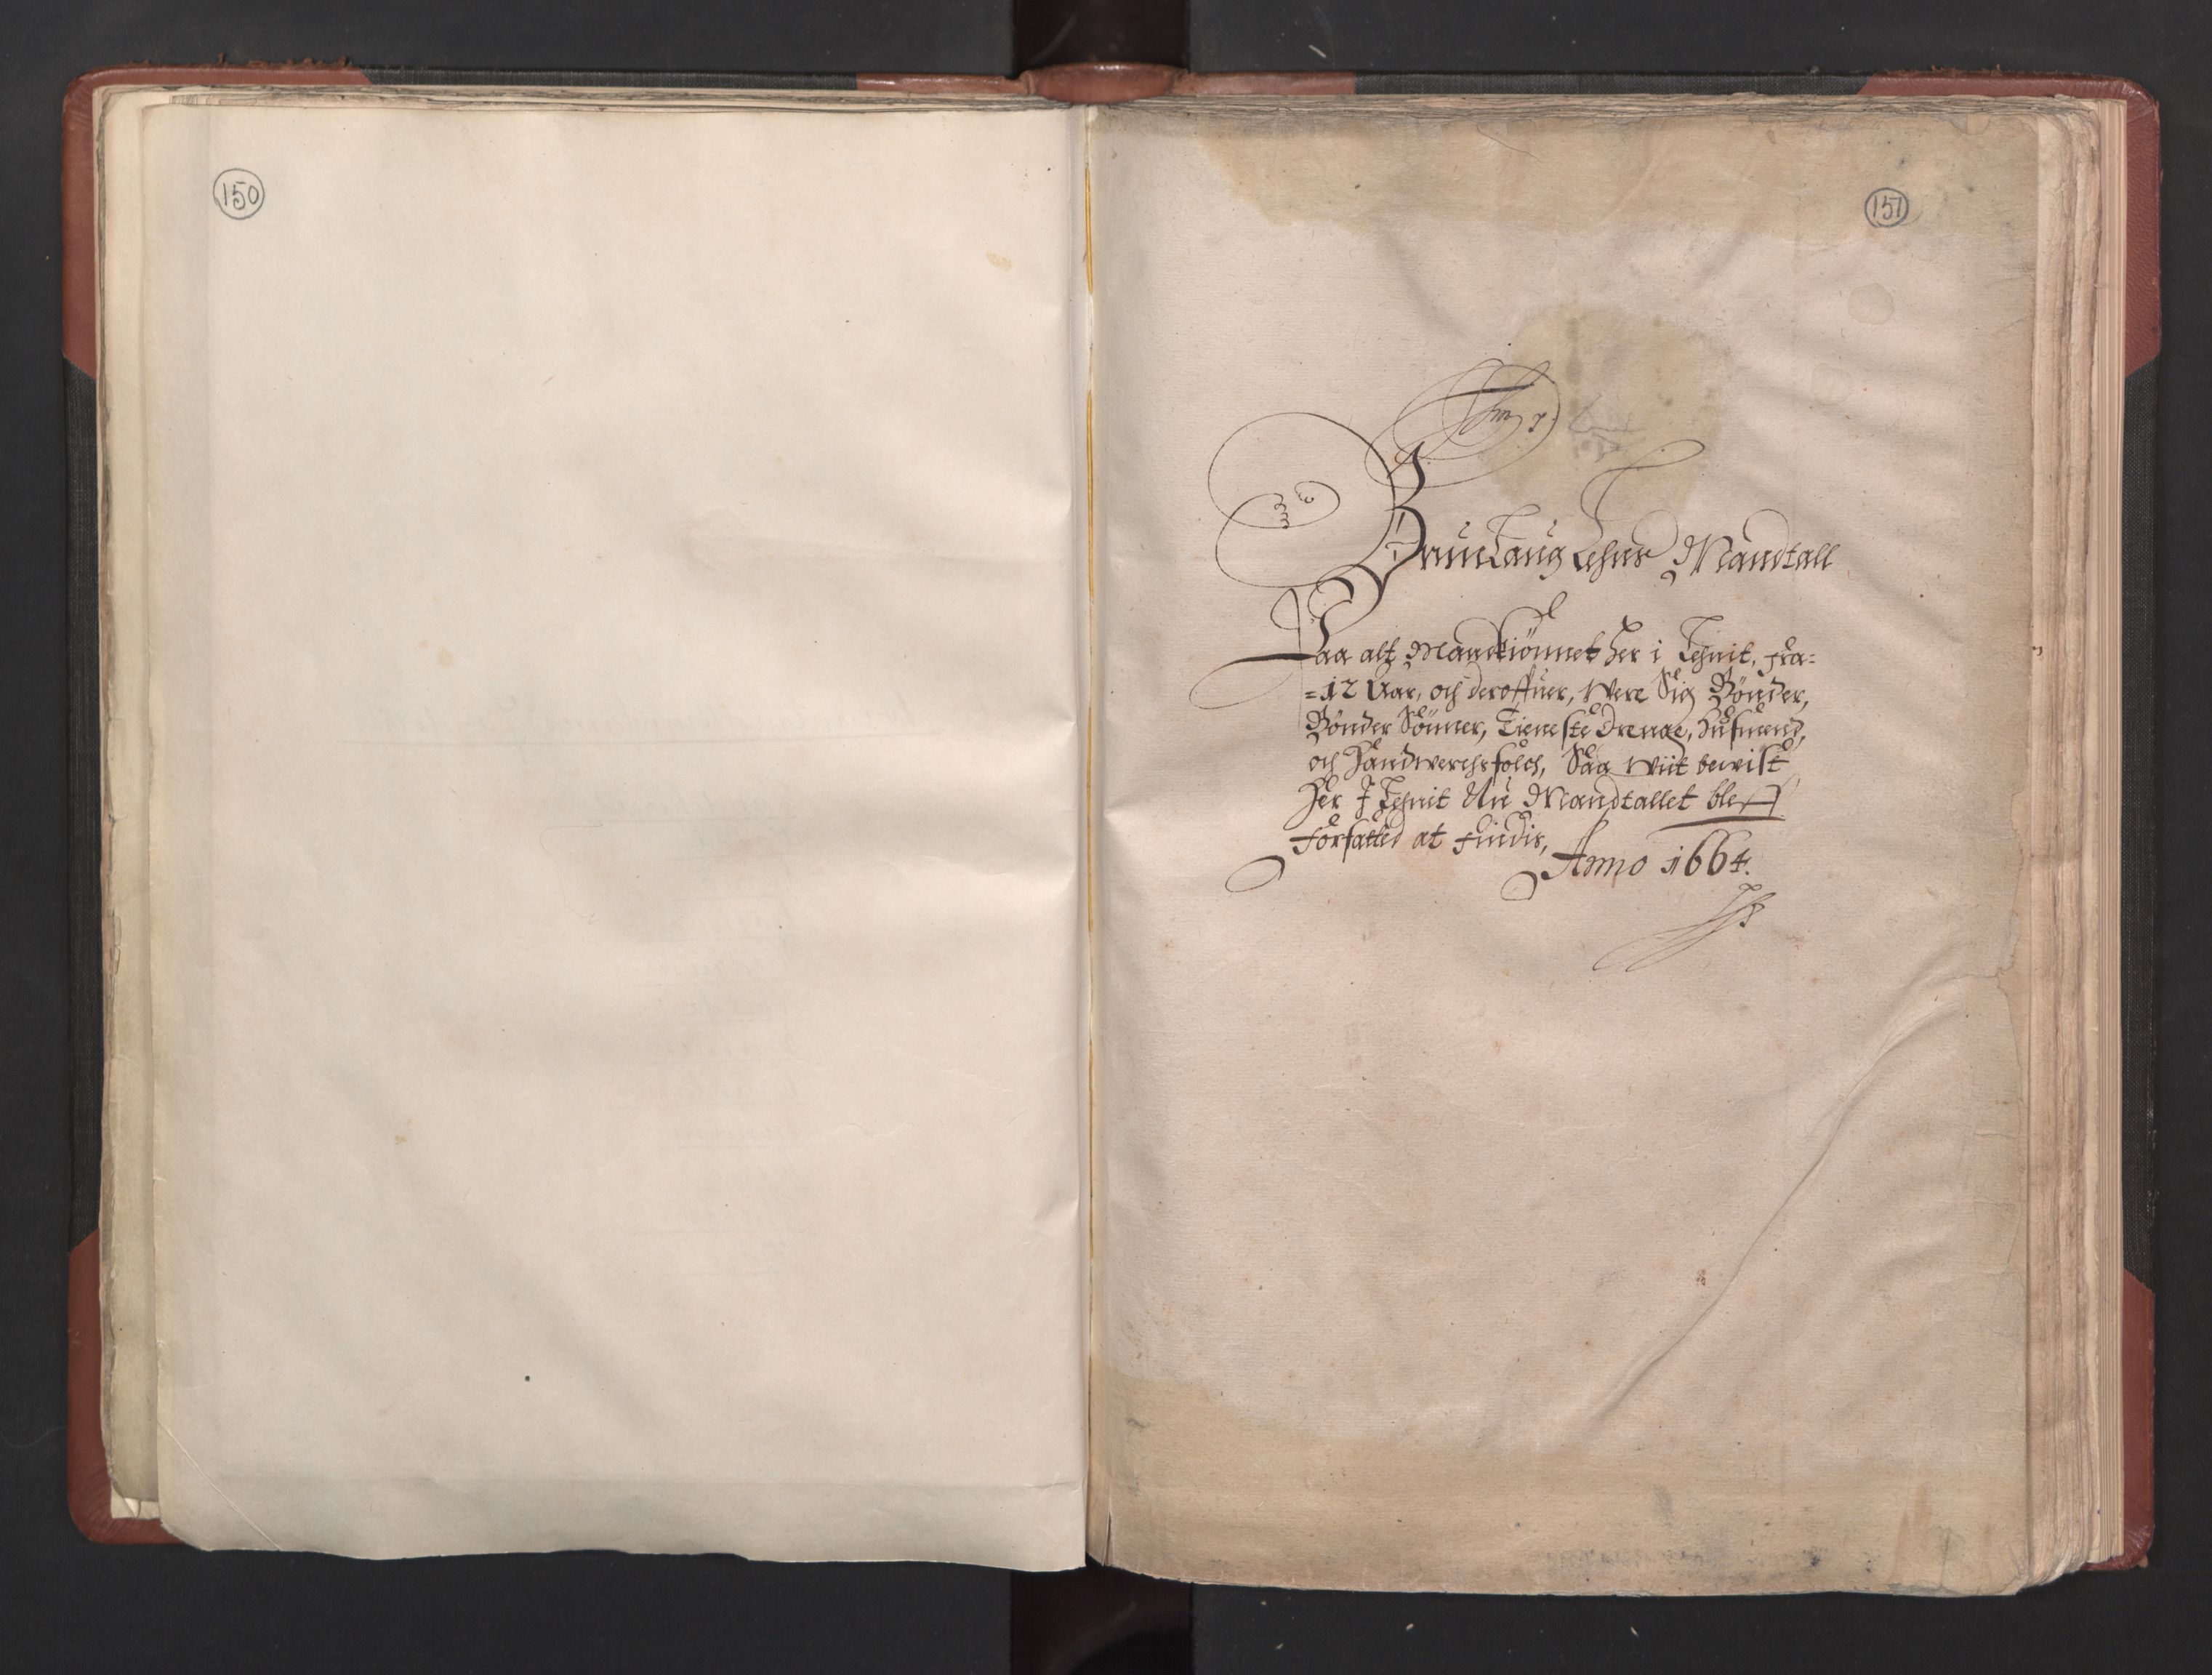 150
151
Brunlaug Lehns Mandtall
Paa alt Mandkiönnet her i Lehnit, fra=
=12 Aar, och deroffuer, Were Sig Bönder,
Bönder Sönner, Tieneste Drenge, Husmend,
och Handwerchsfolch, Saa wiit bewist
Her I Lehnit Nu Mandtallet bleff
forfatted at findis,
Anno 1664.